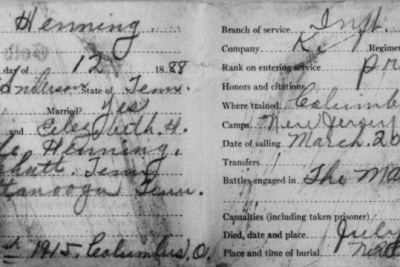 Henning.
day of 12 1888
Anderson State of Tenn.
Married? Yes
and Elizabeth H.
Henning.
Tenn
Tenn.
1915. Columbus, O.
Branch of service Inft.
Company K. Regimen
Rank on entering service Pr
Honors and citations
Where trained: Columb
Camps, New Jersey
Date of sailing March. 20
Transfers
Battles engaged in The Ma
Casualties (including taken prisoner)
Died, date and place July
Place and time of burial, Nea